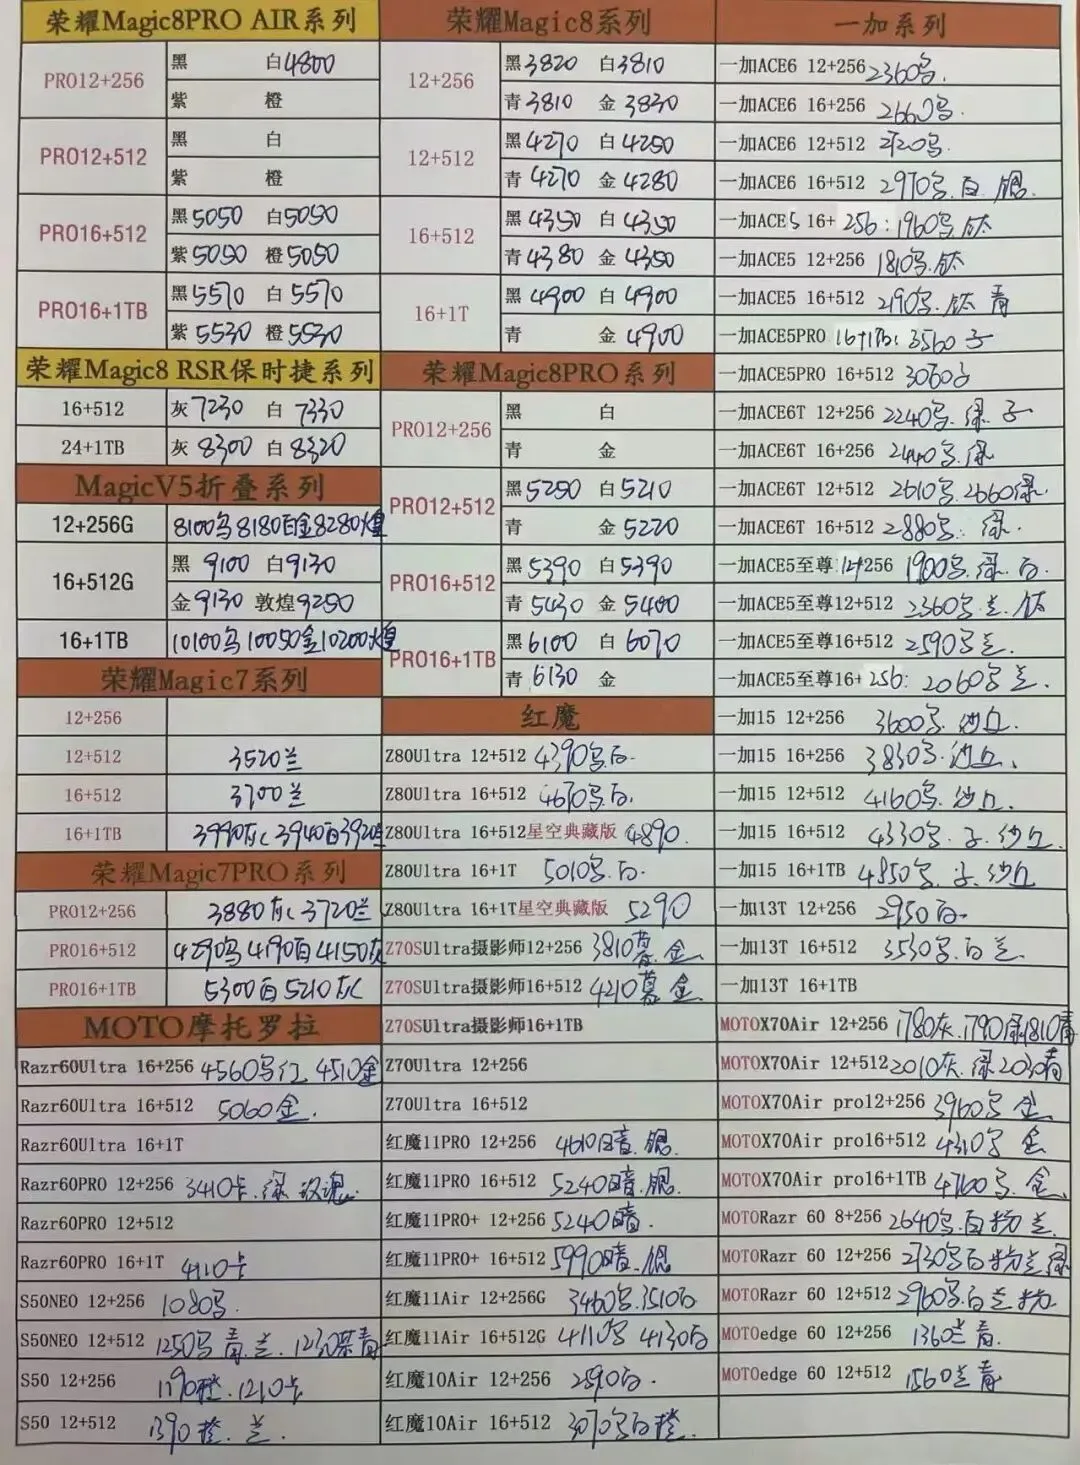 荣耀Magic8PRO AIR系列
PRO12+256
黑 白4800
紫 橙
PRO12+512
黑 白
紫 橙
PRO16+512
黑5050 白5050
紫5050 橙5050
PRO16+1TB
黑5570 白5570
紫5530 橙5530
荣耀Magic8 RSR保时捷系列
16+512 灰7230 白7330
24+1TB 灰8300 白8320
MagicV5折叠系列
12+256G 8100乌8180白金8280煌
16+512G
黑 9100 白9130
金9130 敦煌9250
16+1TB 10100乌10050金10200煌
荣耀Magic7系列
12+256
12+512 3520兰
16+512 3700兰
16+1TB 3990灰 3940白3920兰
荣耀Magic7PRO系列
PRO12+256 3880灰 3720兰
PRO16+512 4290乌4190白4150灰
PRO16+1TB 5300白5210灰
MOTO摩托罗拉
Razr60Ultra 16+256 4560乌红 4510金
Razr60Ultra 16+512 5060金.
Razr60Ultra 16+1T
Razr60PRO 12+256 3410卡.绿 玫瑰.
Razr60PRO 12+512
Razr60PRO 16+1T 4110卡
S50NEO 12+256 1080乌.
S50NEO 12+512 1250乌 青.兰. 1230茶青
S50 12+256 1190橙.1210卡
S50 12+512 1390橙.兰.
荣耀Magic8系列
12+256
黑3820 白3810
青3810 金3830
12+512
黑4270 白4250
青4270 金4280
16+512
黑4350 白4350
青4380 金4350
16+1T
黑4900 白4900
青 金4900
荣耀Magic8PRO系列
PRO12+256
黑 白
青 金
PRO12+512
黑5250 白5210
青 金5220
PRO16+512
黑5390 白5390
青5430 金5400
PRO16+1TB
黑6100 白6070
青6130 金
红魔
Z80Ultra 12+512 4390乌白.
Z80Ultra 16+512 4670乌白.
Z80Ultra 16+512星空典藏版 4890.
Z80Ultra 16+1T 5010乌.白.
Z80Ultra 16+1T星空典藏版 5290
Z70SUltra摄影师12+256 3810暮.金.
Z70SUltra摄影师16+512 4210暮 金.
Z70SUltra摄影师16+1TB
Z70Ultra 12+256
Z70Ultra 16+512
红魔11PRO 12+256 4610暗.银.
红魔11PRO 16+512 5240暗.银.
红魔11PRO+ 12+256 5240暗.
红魔11PRO+ 16+512 5990暗.银
红魔11Air 12+256G 3460乌.3510白
红魔11Air 16+512G 4110乌 4130白
红魔10Air 12+256 2590白.
红魔10Air 16+512 3070乌白橙.
一加系列
一加ACE6 12+256 2360乌.
一加ACE6 16+256 2660乌.
一加ACE6 12+512 2720乌.
一加ACE6 16+512 2970乌.白 银.
一加ACE5 16+256:1960乌 钛
一加ACE5 12+256 1810乌.钛
一加ACE5 16+512 2190乌.钛 青
一加ACE5PRO 16+1TB: 3560子
一加ACE5PRO 16+512 3060子
一加ACE6T 12+256 2240乌.绿 子
一加ACE6T 16+256 2440乌.绿
一加ACE6T 12+512 2610乌.2660绿.
一加ACE6T 16+512 2880乌. 绿.
一加ACE5至尊12+256 1900乌.绿.白.
一加ACE5至尊12+512 2360乌兰.钛
一加ACE5至尊16+512 2590乌兰.
一加ACE5至尊16+256: 2060乌兰.
一加15 12+256 3600乌.沙丘.
一加15 16+256 3830乌.沙丘.
一加15 12+512 4160乌.沙丘.
一加15 16+512 4330乌.子.沙丘.
一加15 16+1TB 4850乌.子.沙丘
一加13T 12+256 2950白.
一加13T 16+512 3530乌.白兰.
一加13T 16+1TB
MOTOX70Air 12+256 1780灰.1790绿1810青
MOTOX70Air 12+512 2010灰.绿2030青
MOTOX70Air pro12+256 3960乌 金.
MOTOX70Air pro16+512 4310乌 金
MOTOX70Air pro16+1TB 4760乌.金.
MOTORazr 60 8+256 2640乌.白粉兰.
MOTORazr 60 12+256 2730乌白粉兰绿
MOTORazr 60 12+512 2960乌.白兰粉
MOTOedge 60 12+256 1360兰青.
MOTOedge 60 12+512 1560兰青